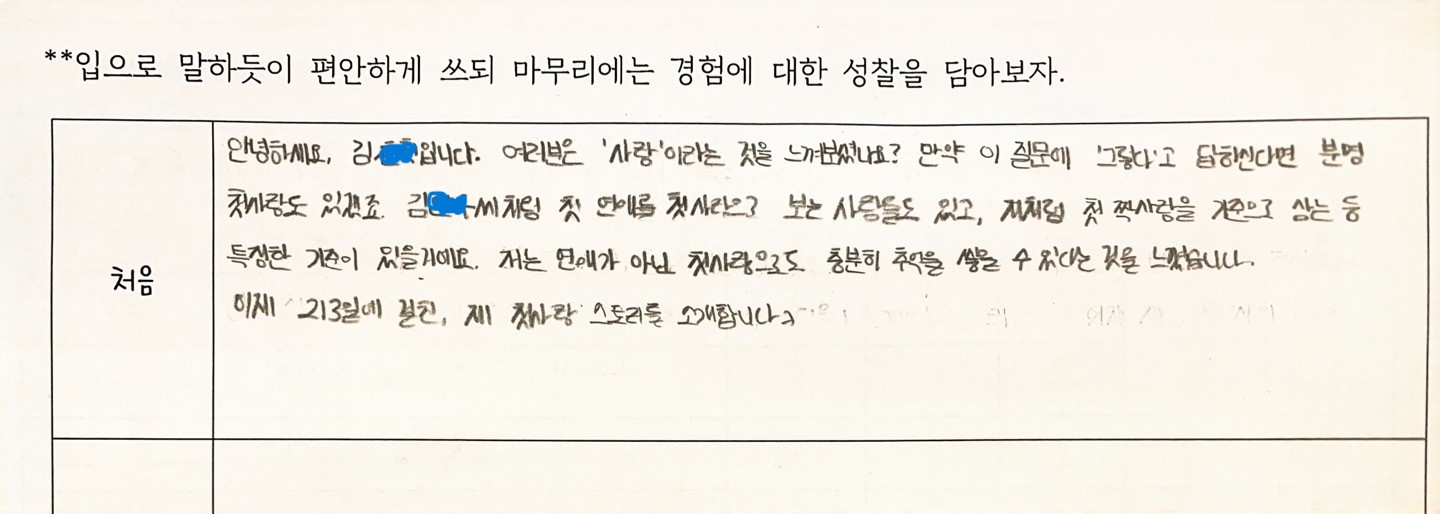 **입으로 말하듯이 편안하게 쓰되 마무리에는 경험에 대한 성찰을 담아보자.
처음
안녕하세요, 김입니다. 여러분은 '사랑'이라는 것을 느껴보셨나요? 만약 이 질문에 '그렇다'고 답하신다면 분명
첫사랑도 있겠죠. 김씨처럼 첫 연애를 첫사랑으로 보는 사람들도 있고, 저처럼 첫 짝사랑을 기준으로 삼는 등
특정한 기준이 있을거예요. 저는 연애가 아닌 첫사랑으로도 충분히 추억을 쌓을 수 있다는 것을 느꼈습니다.
이제 213일에 걸친, 제 첫사랑 스토리를 소개합니다.